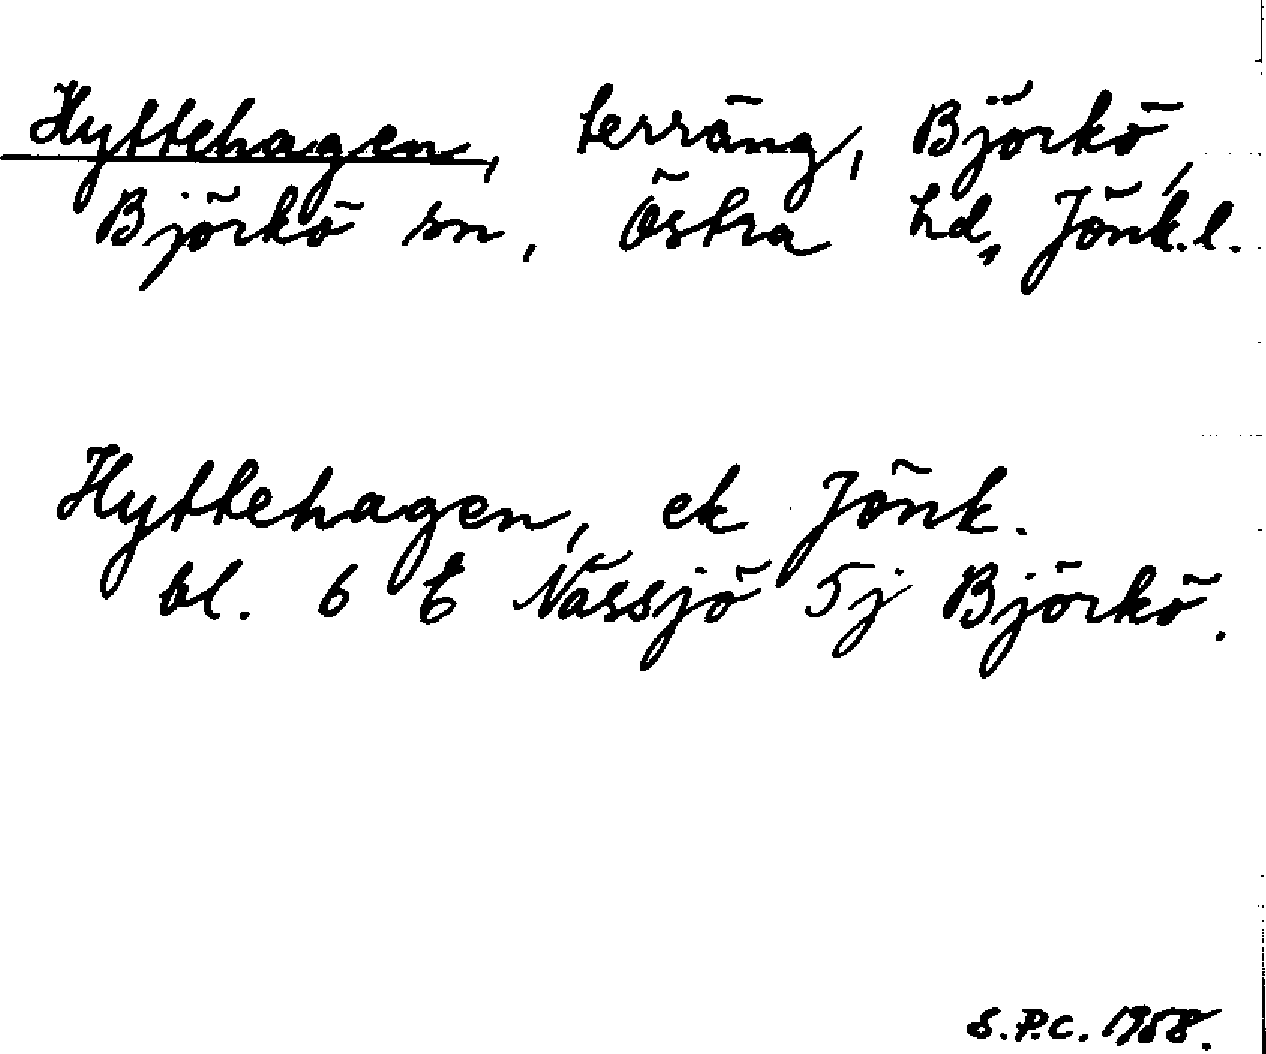 Hyttehagen, terräng, Björkö,
Björkö sn, Östra hd, Jönk.l.
Hyttehagen, ek Jönk.
bl. 6 E Nässjö 5j Björkö.
S.P.C. 1958.